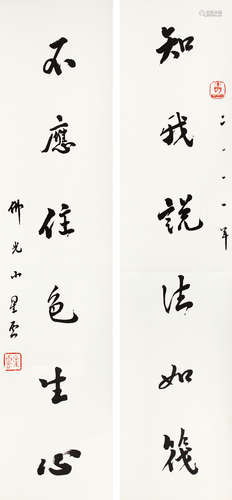 知我說法如筏
二〇一一年
不應住色生心
佛光山星雲